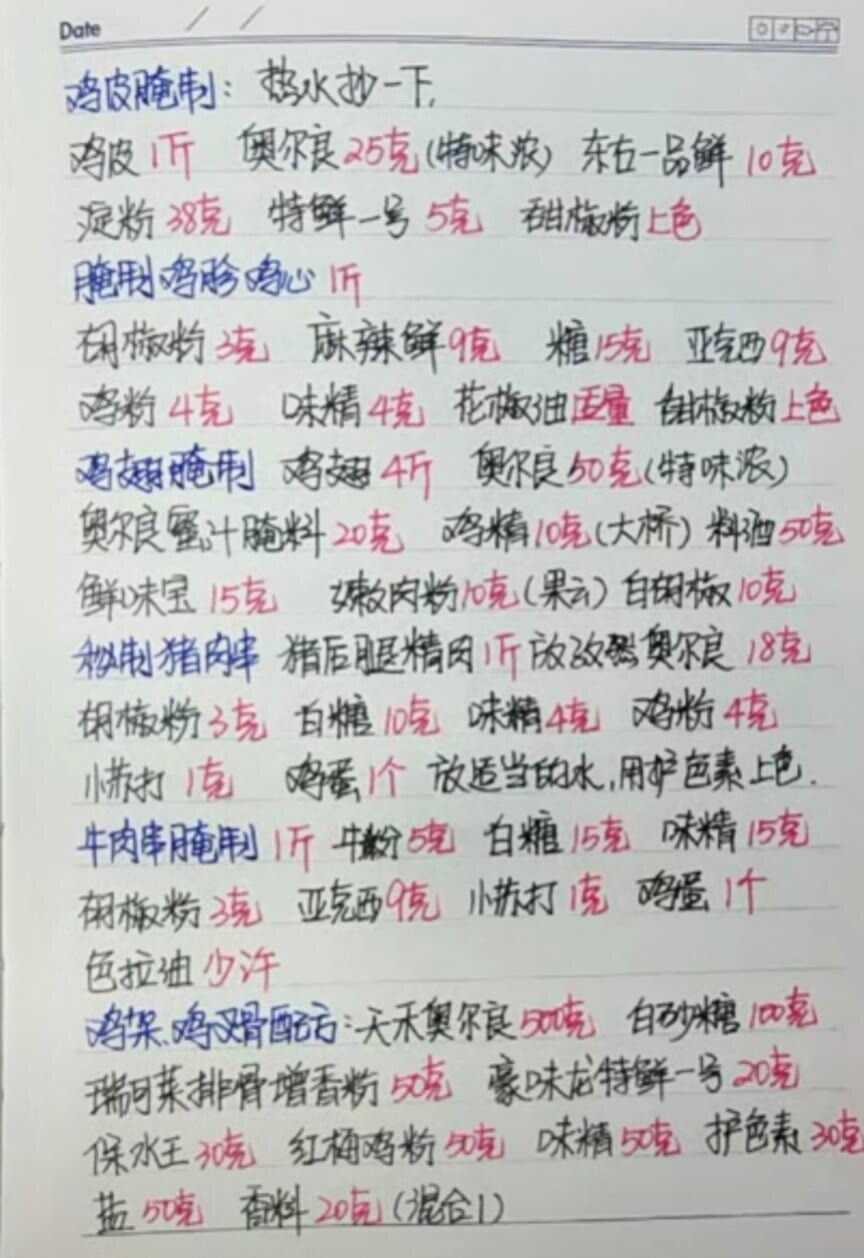 Date / /
鸡皮腌制: 热水抄一下,
鸡皮1斤 奥尔良25克(特味浓) 东古一品鲜10克
淀粉38克 特鲜一号5克 甜椒粉上色
腌制鸡胗鸡心1斤
胡椒粉3克 麻辣鲜9克 糖15克 亚克西9克
鸡粉4克 味精4克 花椒油适量 甜椒粉上色
鸡翅腌制 鸡翅4斤 奥尔良50克(特味浓)
奥尔良蜜汁腌料20克 鸡精10克(大桥) 料酒50克
鲜味宝15克 嫩肉粉10克(果云) 白胡椒10克
秘制猪肉串 猪后腿精肉1斤 放孜然奥尔良18克
胡椒粉3克 白糖10克 味精4克 鸡粉4克
小苏打1克 鸡蛋1个 放适当的水,用护色素上色.
牛肉串腌制1斤 牛粉5克 白糖15克 味精15克
胡椒粉3克 亚克西9克 小苏打1克 鸡蛋1个
色拉油少许
鸡架、鸡叉骨配方:天禾奥尔良500克 白砂糖100克
瑞可莱排骨增香粉50克 豪味龙特鲜一号20克
保水王30克 红梅鸡粉50克 味精50克 护色素30克
盐50克 香料20克(混合1)